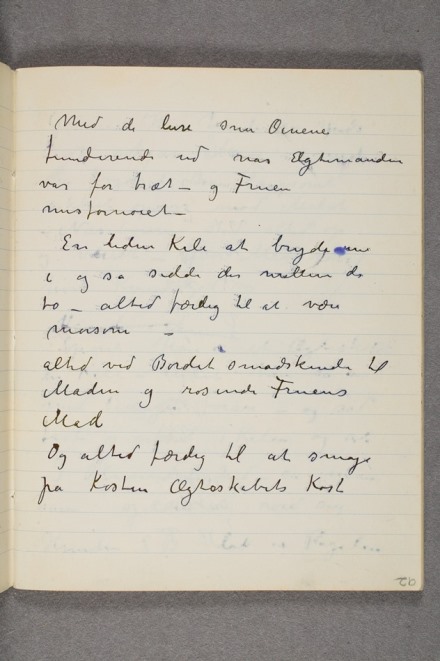 Med de lure smaa Öinene
funderende ud naar Ægtemanden
var for træt – og Fruen
misfornöiet –
En liden Kile at bryde
i og så sidde der mellem de
to – altid færdig til at være
morsom –
altid ved Bordet smadskende til
Maden og rosende Fruens
Mad
Og altid færdig til at smage
på Kosten Ægteskabets Kost
26